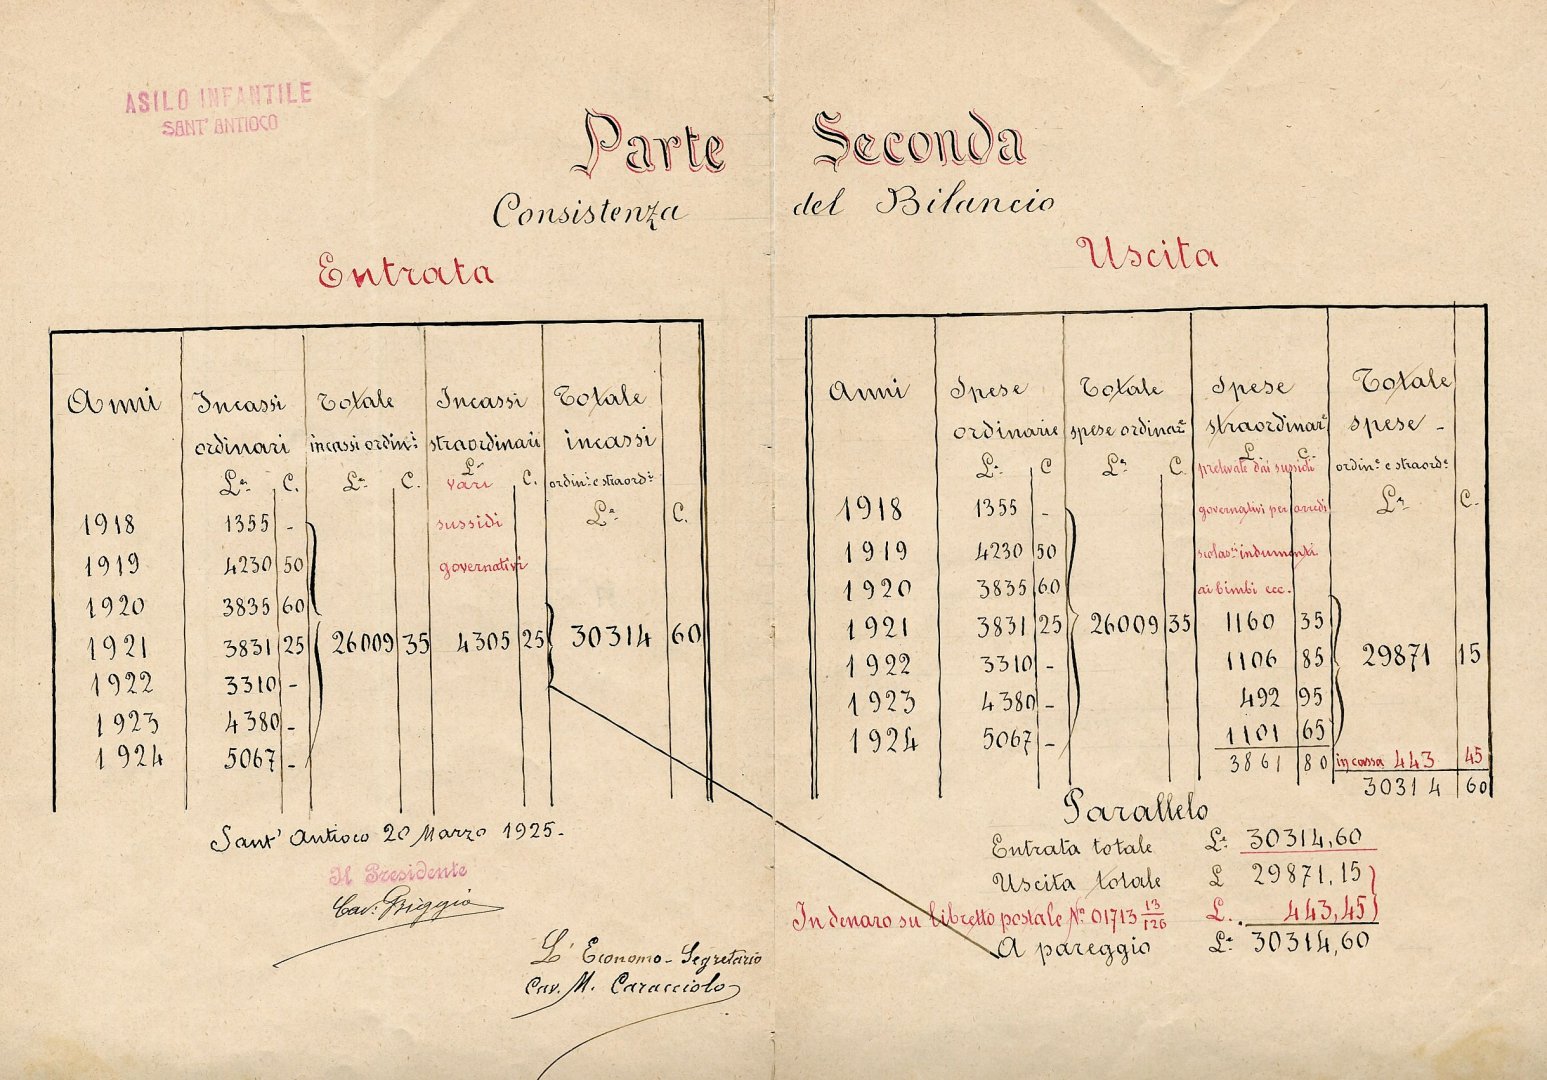 ASILO INFANTILE
SANT' ANTIOCO
Parte Seconda
Consistenza del Bilancio
Entrata
Anni Incassi Totale Incassi Totale
ordinari incassi ordin.i straordinari incassi
L.e C. L.e C. L.e C. ordin.i e straord.i
vari L.e C.
1918 1355 - sussidi
1919 4230 50 governativi
1920 3835 60
1921 3831 25 26009 35 4305 25 30314 60
1922 3310 -
1923 4380 -
1924 5067 -
Sant' Antioco 20 Marzo 1925.
Il Presidente
Cav. Biggio
L' Economo-Segretario
Cav. M. Caracciolo
Uscita
Anni Spese Totale Spese Totale
ordinarie spese ordinar.e straordinar.e spese -
L.e C L.e C. L. C. ordin.e e straord.e
prelevate dai sussidi L.e C.
1918 1355 - governativi per arredi
1919 4230 50 scolas.ci indumenti
1920 3835 60 ai bimbi ecc.
1921 3831 25 26009 35 1160 35
1922 3310 - 1106 85 29871 15
1923 4380 - 492 95
1924 5067 - 1101 65
3861 80 in cassa 443 45
30314 60
Parallelo
Entrata totale L.e 30314,60
Uscita totale L 29871,15
In denaro su libretto postale N.o 01713 13/126 L. 443,45
A pareggio L.e 30314,60